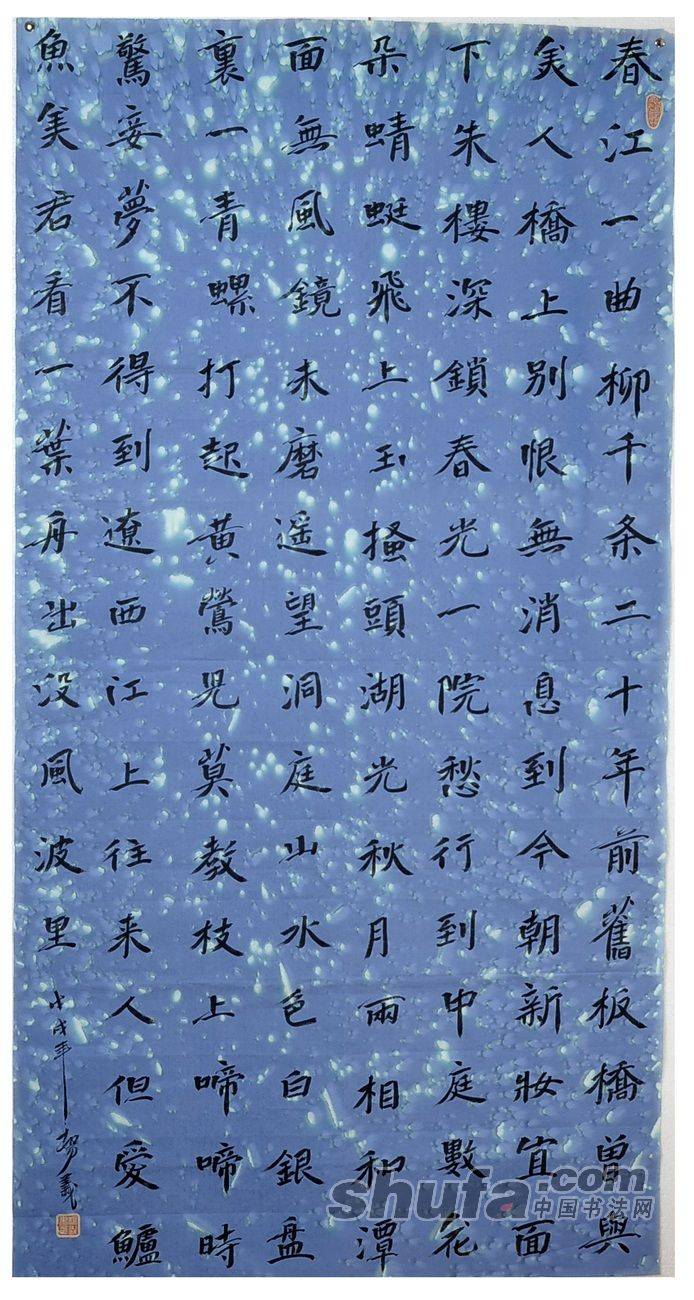 春江一曲柳千条二十年前舊板橋曾與
美人橋上别恨無消息到今朝新妝宜面
下朱樓深鎖春光一院愁行到中庭數花
朵蜻蜓飛上玉搔頭湖光秋月兩相和潭
面無風鏡未磨遥望洞庭山水色白銀盘
裏一青螺打起黃鶯兒莫教枝上啼啼時
驚妾夢不得到遼西江上往来人但愛鱸
魚美君看一葉舟出没風波里
戌年
shufa.com
中国书法网